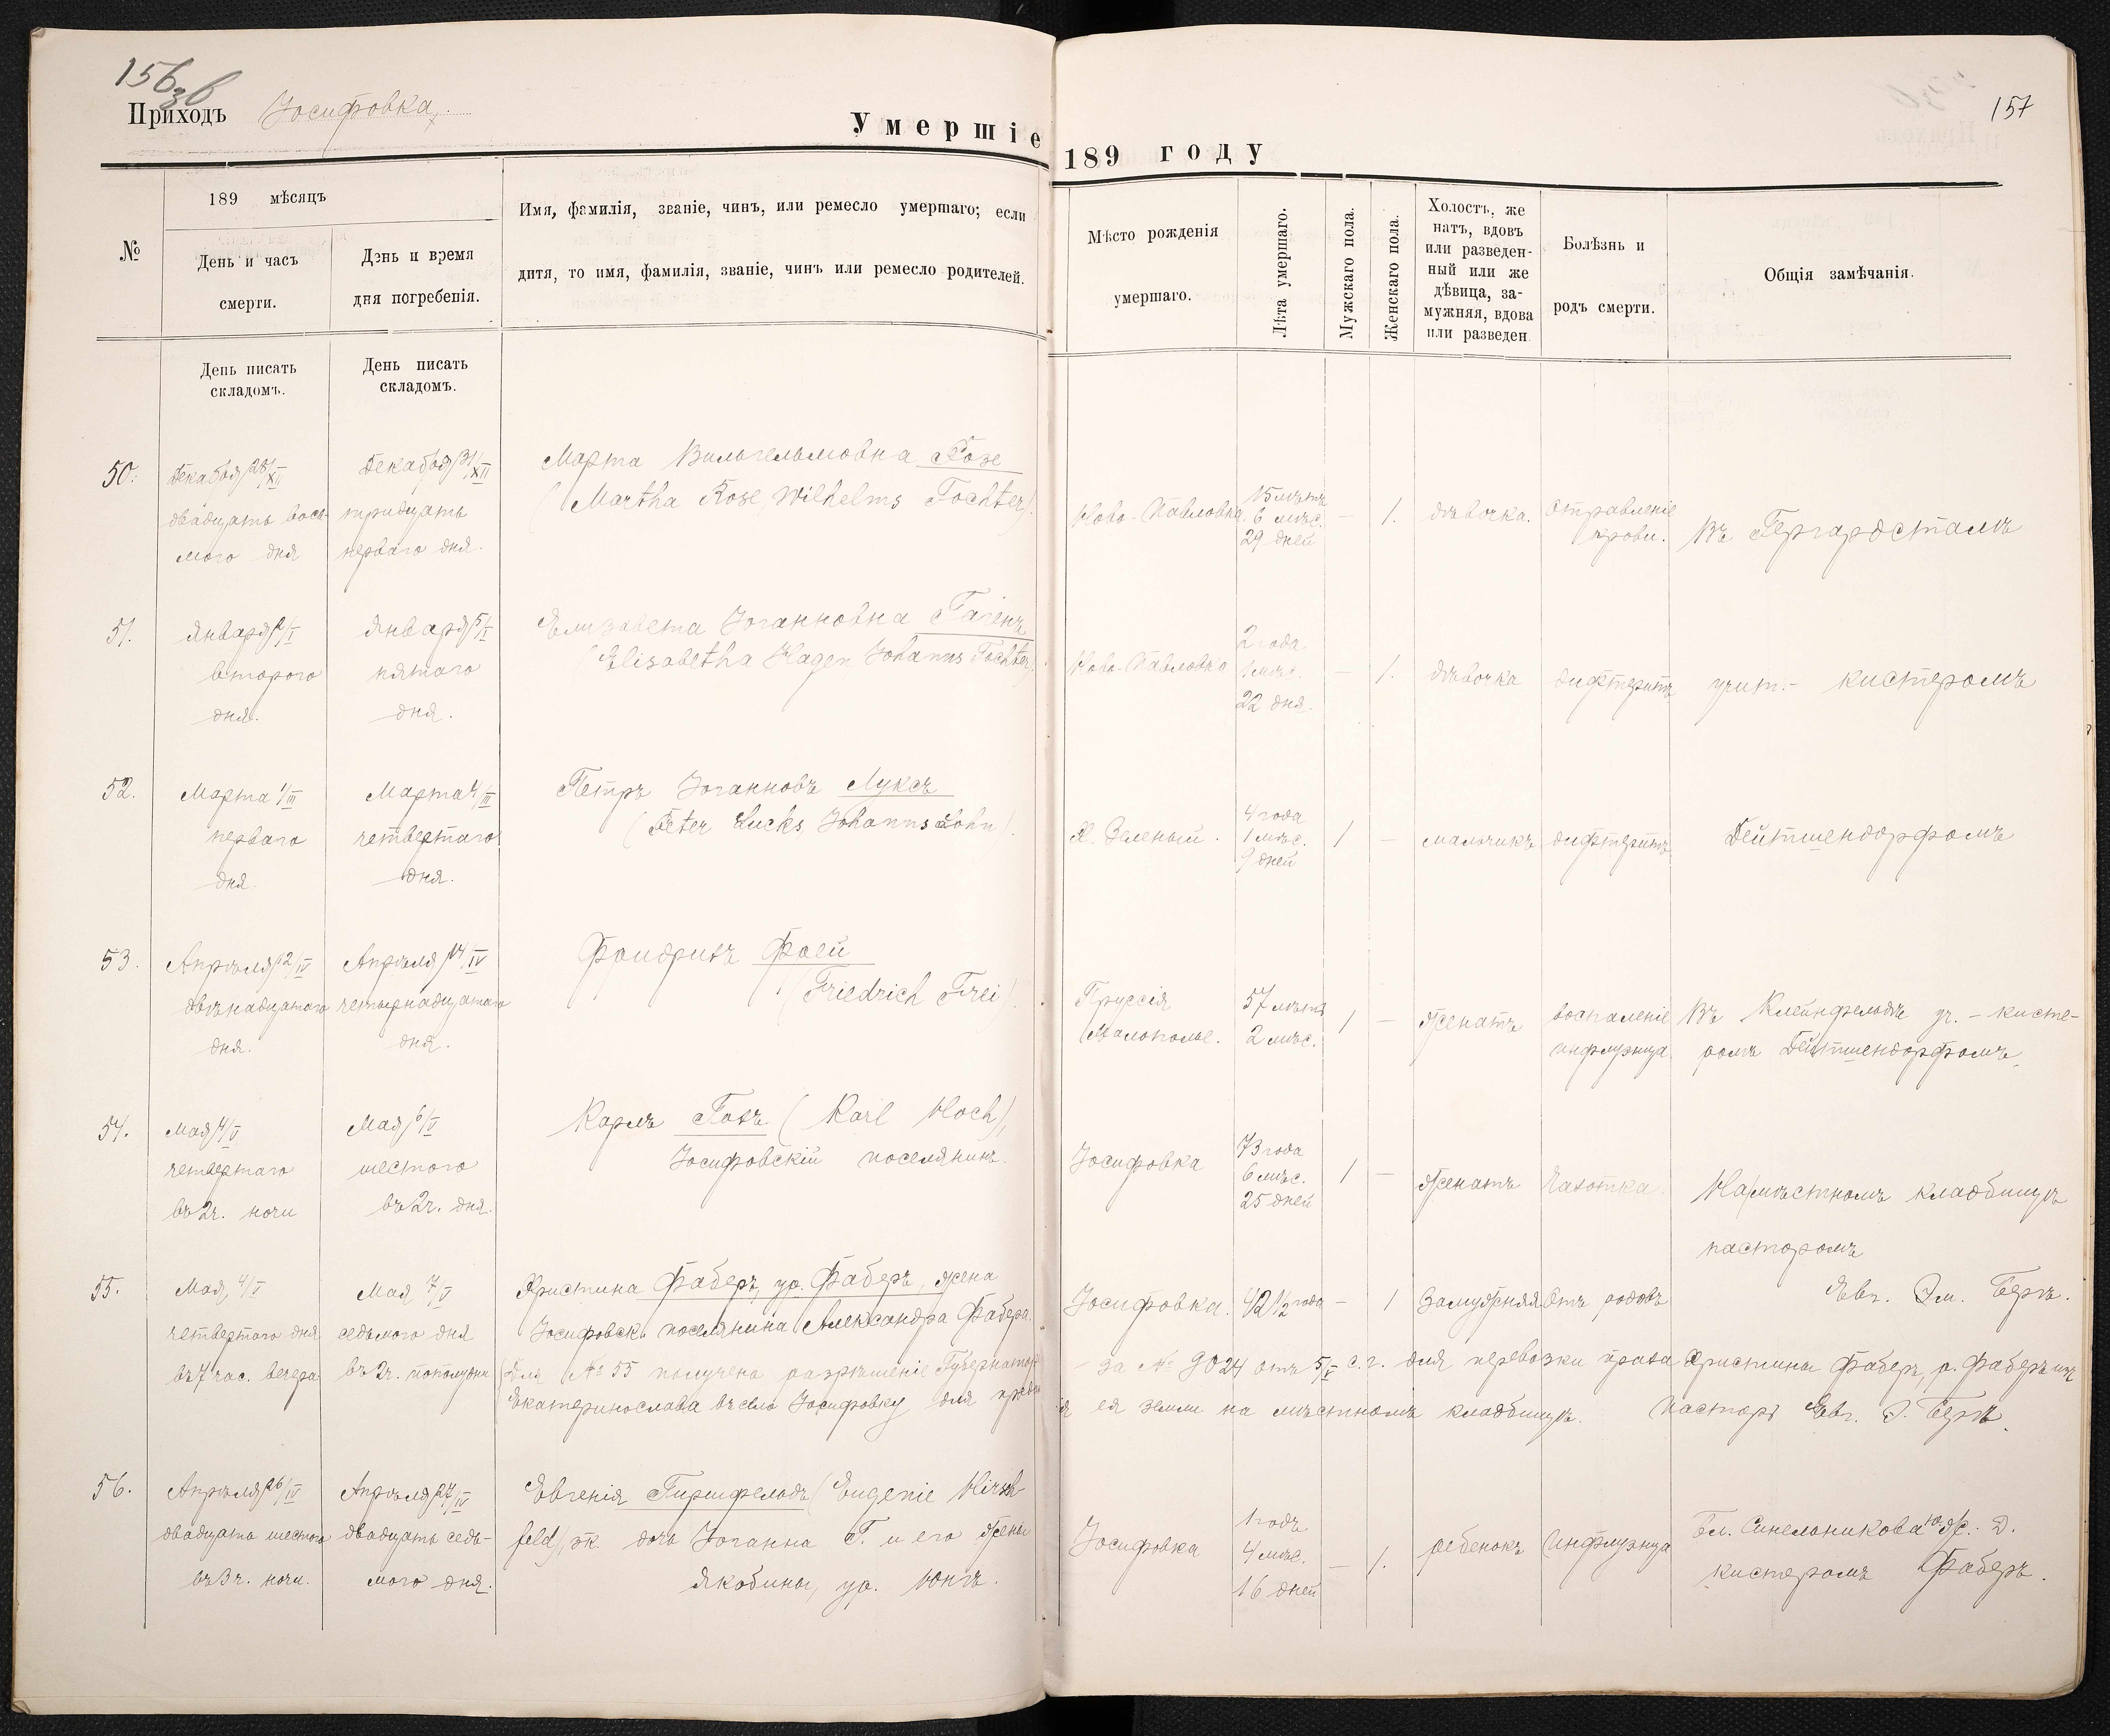 156
зв
Приходъ Іосифовка
157
Умершіе
189 году
№
189 мѣсяцъ
День и часъ
смерти.
День и время
дня погребенія.
Имя, фамилія, званіе, чинъ, или ремесло умершаго; если
дитя, то имя, фамилія, званіе, чинъ или ремесло родителей.
Мѣсто рожденія
умершаго.
Лѣта умершаго.
Мужскаго пола.
Женскаго пола.
Холостъ, же
натъ, вдовъ
или разведен-
ный или же
дѣвица, за-
мужняя, вдова
или разведен
Болѣзнь и
родъ смерти.
Общія замѣчанія.
День писать
складомъ.
День писать
складомъ.
50.
Декабря 28/XII
двадцать вось-
мого дня
Декабря 31/XII
тридцать
перваго дня.
Марта Вильгельмовна Розе
(Martha Rose, Wilhelms Tochter).
Ново-Павловка.
15 лѣтъ
6 мѣс.
29 дней
— 1.
дѣвочка.
Отравленіе
крови.
Въ Гергардсталѣ
51.
Января 2/I
второго
дня.
Января 5/I
пятаго
дня.
Елизавета Іоганновна Гагенъ
(Elisabetha Hagen Johanns Tochter).
Ново-Павловка
2 года
1 мѣс.
22 дня.
— 1.
дѣвочка
дифтеритъ
учит.- кистеромъ
52.
Марта 1/III
перваго
дня.
Марта 4/III
четвертаго
дня.
Петръ Іоганновъ Луксъ
(Peter Lucks, Johanns Sohn).
Х. Зеленый.
4 года
1 мѣс.
9 дней
1 —
мальчикъ
дифтеритъ
Дейтшендорфомъ
53.
Апрѣля 12/IV
двѣнадцатаго
дня.
Апрѣля 14/IV
четырнадцатаго
дня.
Фридрихъ Фрей
(Friedrich Frei).
Пруссія
Малополье.
57 лѣтъ
2 мѣс.
1 —
Женатъ
воспаленіе
инфлуэнца
Въ Клейнфельдѣ уч. - кисте-
ромъ Дейтшендорфомъ.
54.
Мая 4/V
четвертаго
въ 2 ч. ночи
Мая 6/V
шестого
въ 2 ч. дня.
Карлъ Гохъ (Karl Hoch),
Іосифовскій поселянинъ.
Іосифовка
73 года
6 мѣс.
25 дней
1 —
Женатъ
Чахотка.
На мѣстномъ кладбищѣ
пасторомъ
Евг. Эм. Беръ.
55.
Мая, 4/V
четвертаго дня
въ 7 час. вечера
Мая 7/V
седьмого дня
въ 2 ч. пополудни
Христина Фаберъ, ур. Фаберъ, жена
Іосифовск. поселянина Александра Фабера.
Іосифовка.
42 1/2 года
— 1
Замужняя
Отъ родовъ
(Для № 55 получена разрѣшеніе Губернатора
за № 9024 отъ 5/V с. г. для перевозки праха Христины Фаберъ, р. Фаберъ изъ
Екатеринослава въ село Іосифовку для преда-
нія ея земли на мѣстномъ кладбищѣ. Пасторъ Евг. Э. Беръ.
56.
Апрѣля 26/IV
двадцать шестого
въ 3 ч. ночи.
Апрѣля 27/IV
двадцать седь-
мого дня.
Евгенія Гиршфельдъ (Eugenie Hirsch-
feld), зк. дочь Іоганна Г. и его жены
Якобины, ур. Юнгъ.
Іосифовка
1 годъ
4 мѣс.
16 дней
— 1.
ребенокъ
Инфлуэнца
Бл. Синельникова Ю. ж. Д.
кистеромъ Фаберъ.